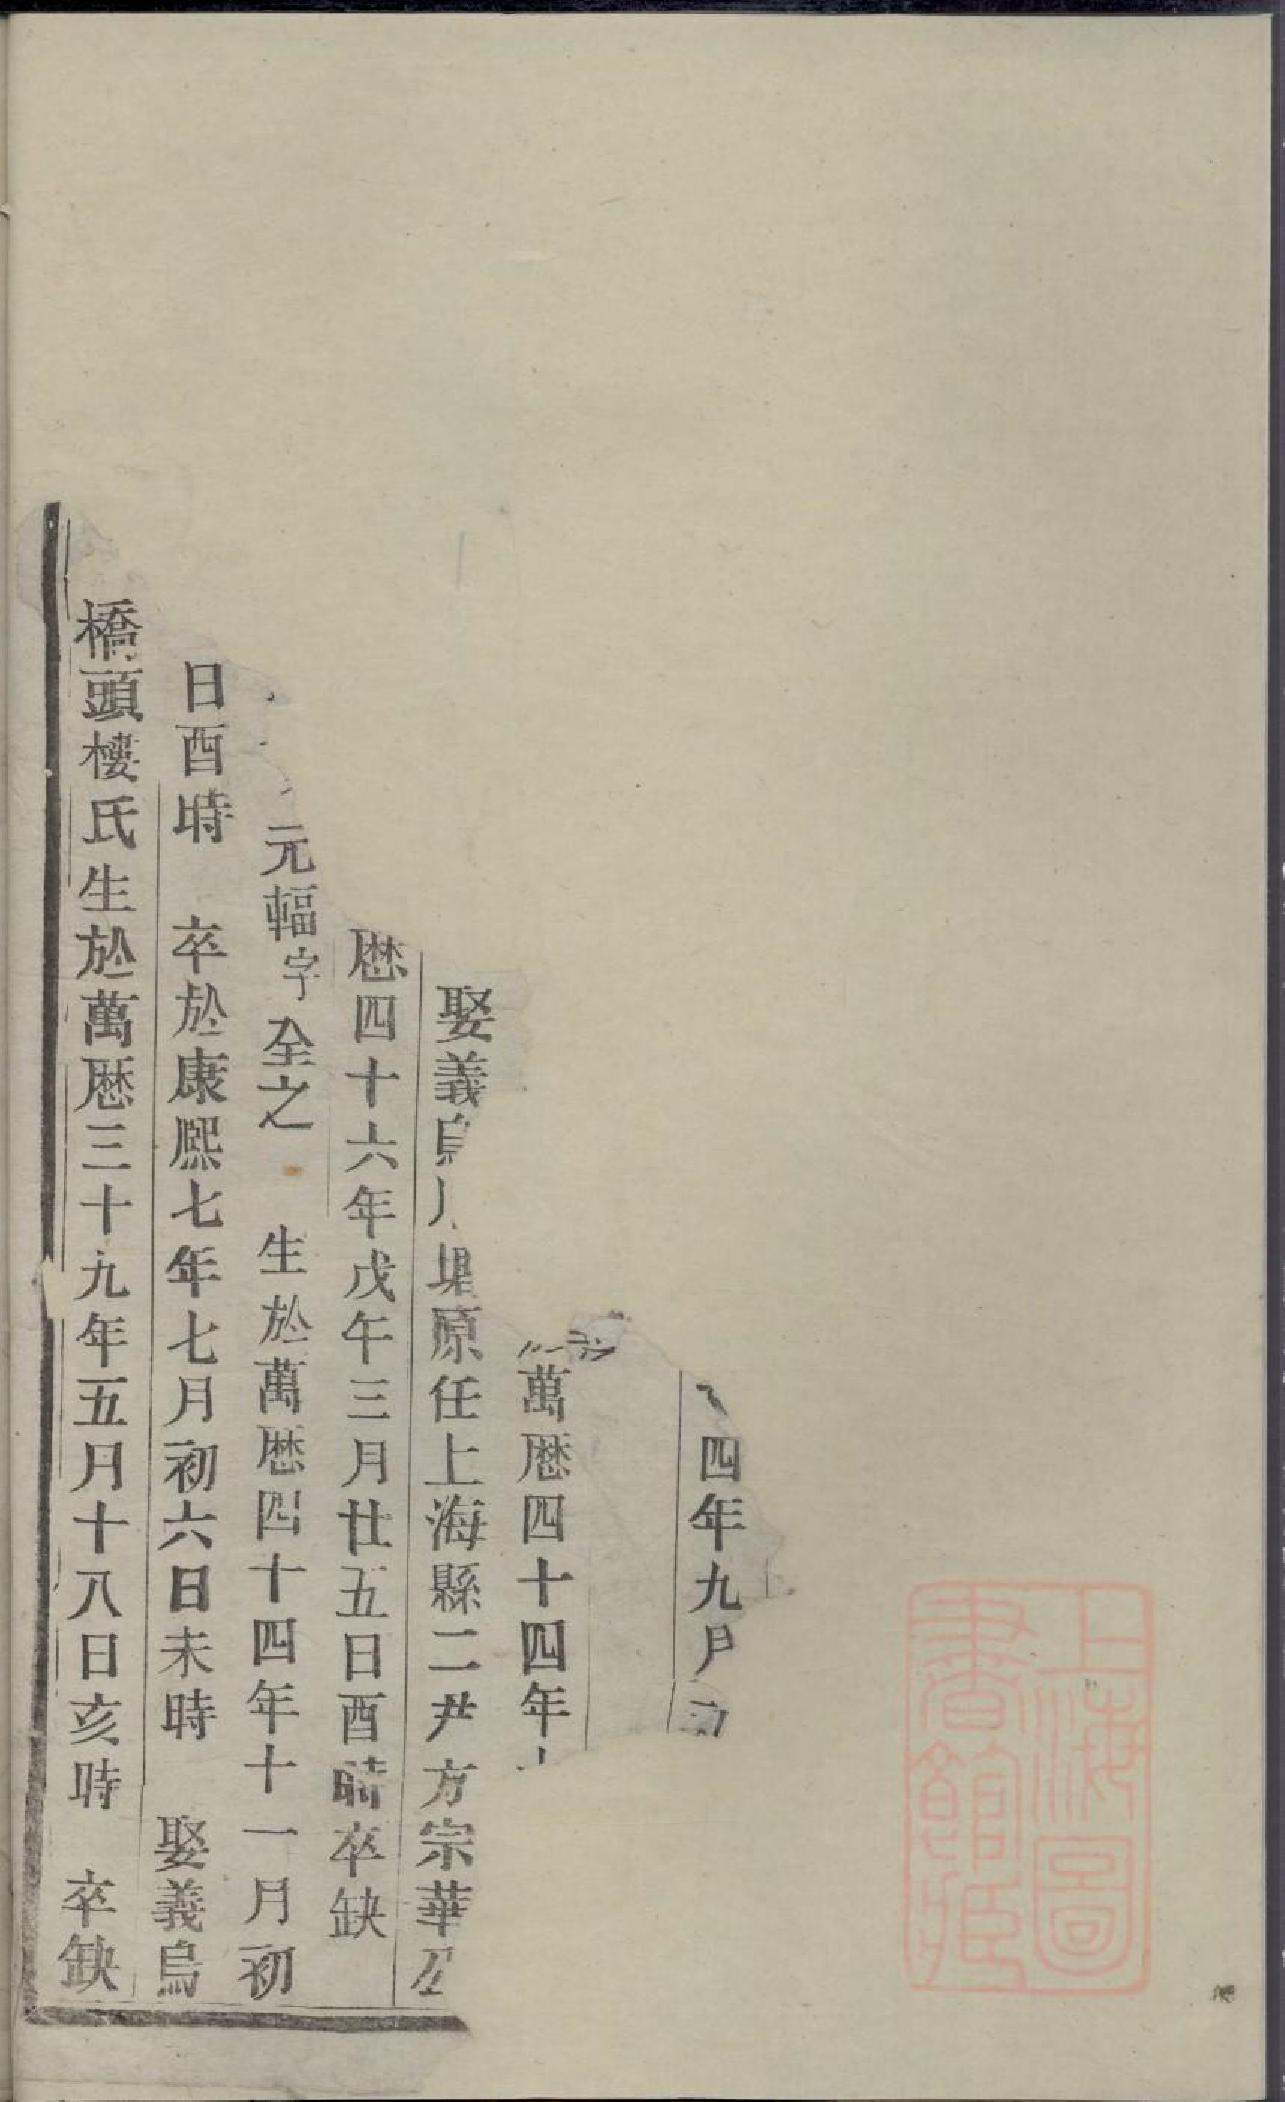 四年九月
萬厯四十四年
娶義烏 塘原任上海縣二尹方宗華公
厯四十六年戊午三月廿五日酉時卒缺
元輻字 全之 生於萬厯四十四年十一月初
日酉時 卒於康熙七年七月初六日未時 娶義烏
橋頭樓氏生於萬厯三十九年五月十八日亥時 卒缺
上海圖書館藏